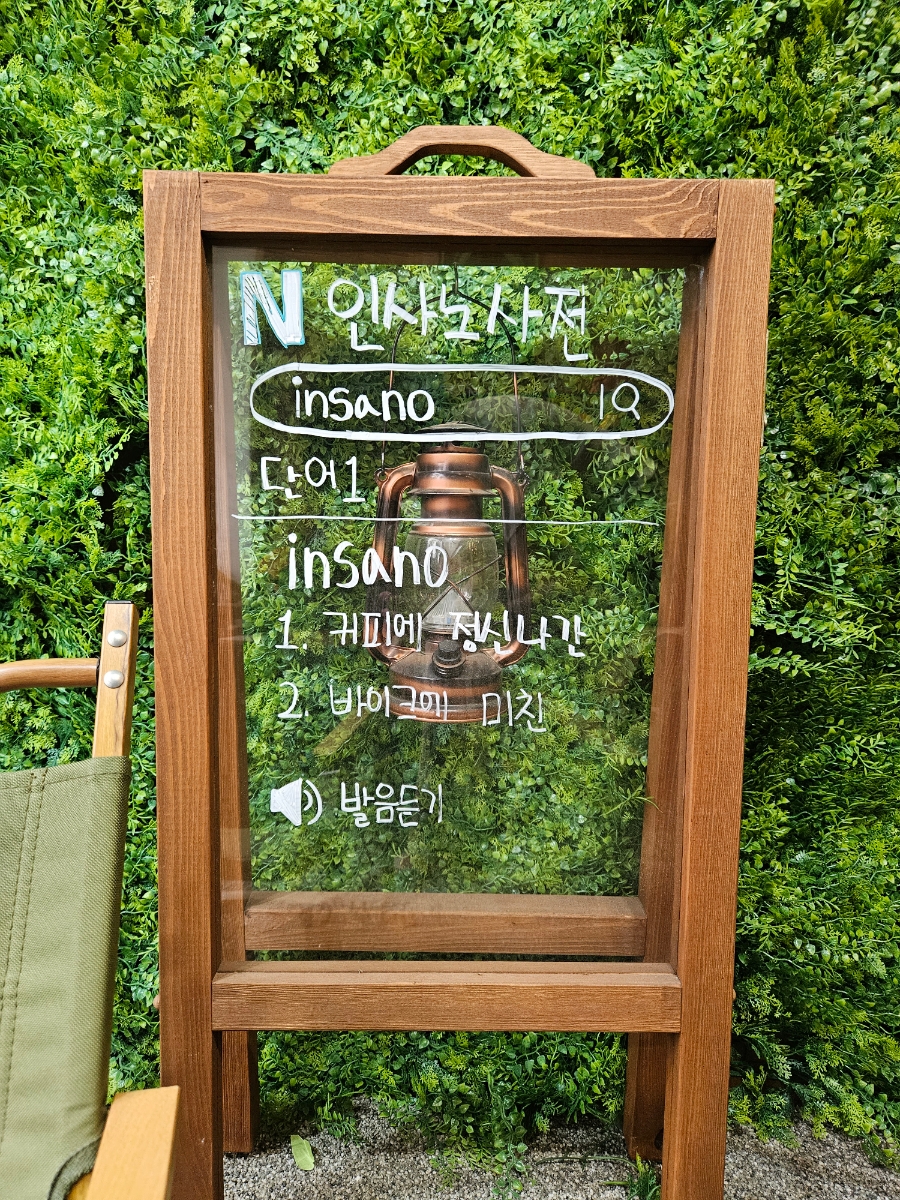 N 인사노사전
insano
단어1
insano
1. 커피에 정신나간
2. 바이크에 미친
발음듣기